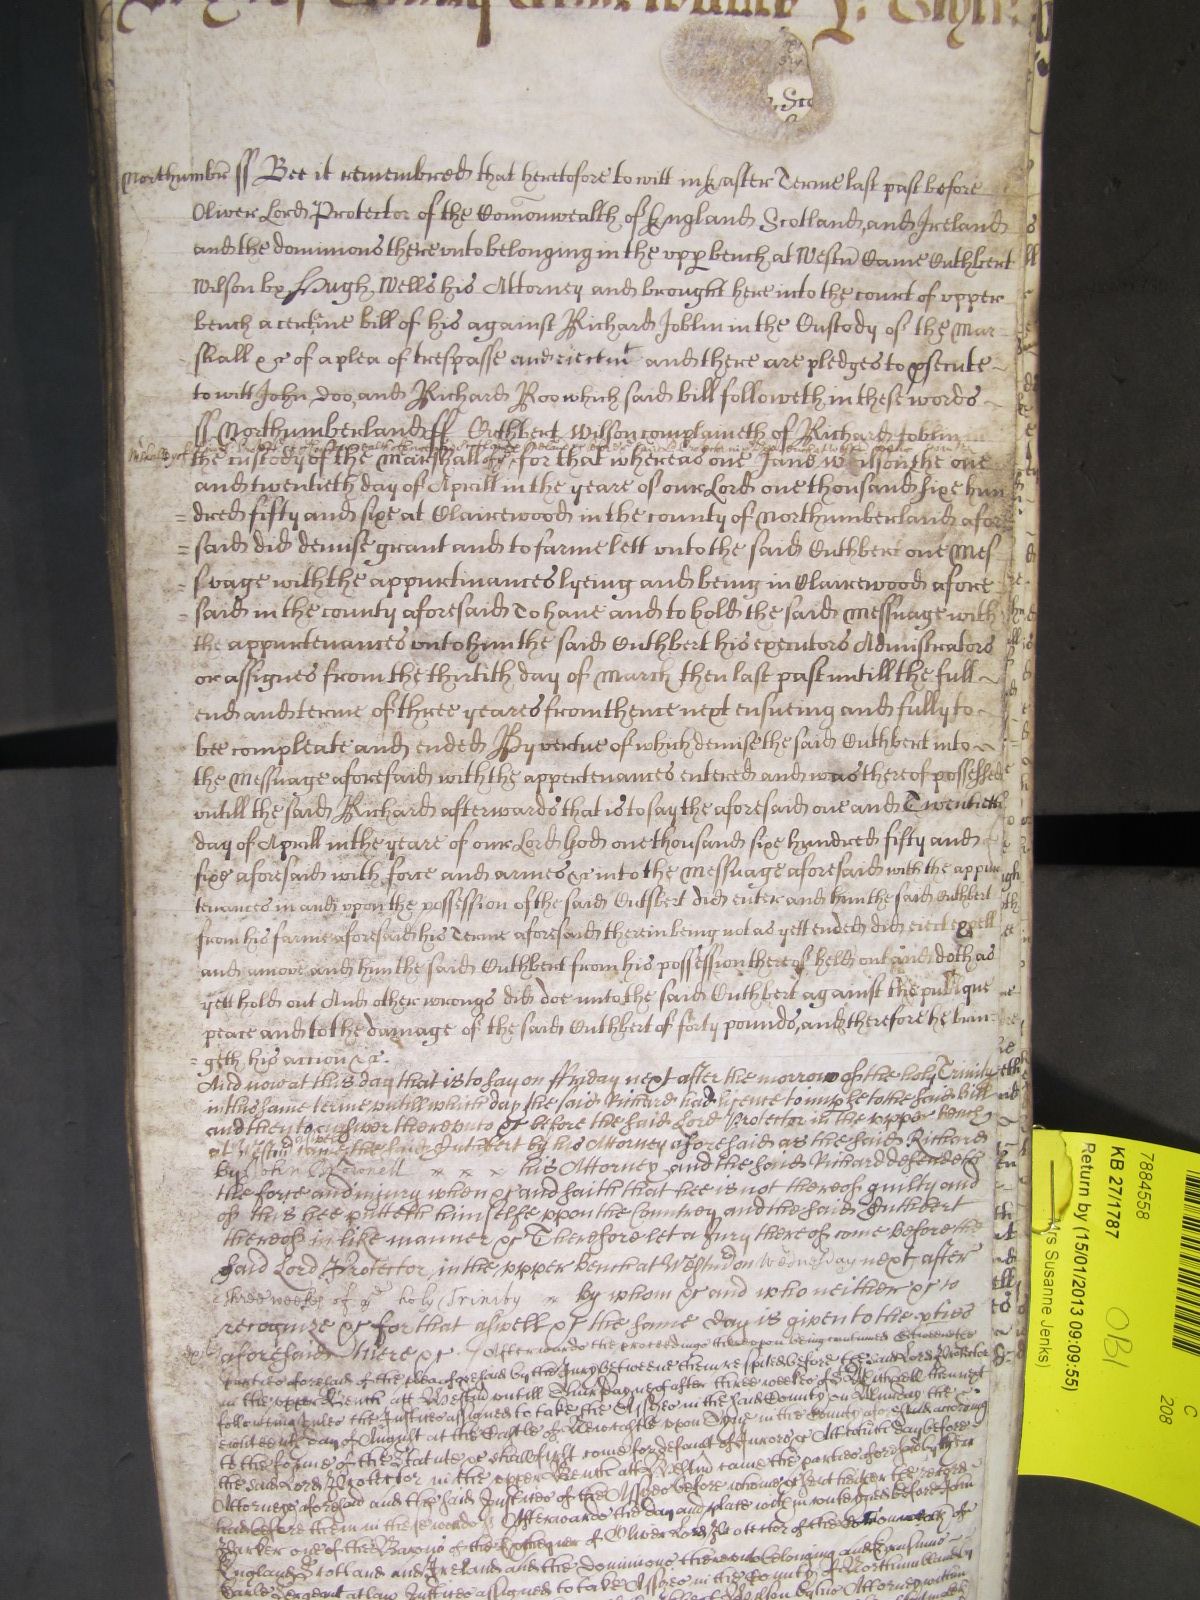 Northumbr ss Bee it remembred that heretofore to witt in Easter Terme last past before
Oliver Lord Protector of the Comonwealth of England Scotland and Ireland
and the dominions thereunto belonging in the upper bench at Westm Came Cuthbert
Wilson by Hugh Wells his Attorney and brought here into the court of upper
bench a certine bill of his against Richard Joblin in the Custody of the Mar-
shall &c of a plea of trespasse and eiectmt and there are pledges to psecute
to witt John Doo, and Richard Roo which said bill followeth in these words
ss Northumberland ss Cuthbert Wilson complaineth of Richard Joblin
the custody of the Marshall &c for that whereas one Jane Wilson the one
and twentieth day of Aprill in the yeare of our Lord one thousand sixe hun
=dred fifty and sixe at Clairewood in the county of Northumberland afore
=said did demise grant and to farme lett unto the said Cuthbert one Mes
=suage with the appurtinances lyeing and being in Clairewood afore
=said in the county aforesaid To have and to hold the said Messuage with
the appurtenances unto him the said Cuthbert his executors Administrators
or assignes from the thirtith day of March then last past untill the full
end and terme of three yeares from thence next ensueing and fully to
bee compleate and ended By vertue of which demise the said Cuthbert into
the Messuage aforesaid with the appertenances entered and was thereof possessed
untill the said Richard afterwards that is to say the aforesaid one and Twentieth
day of Aprill in the yeare of our Lord God one thousand sixe hundred fifty and
sixe aforesaid with force and armes &c into the Messuage aforesaid with the appur
tenances in and upon the possession of the said Cutbert did enter and him the said Cuthbert
from his farme aforesaid his Terme aforesaid therein being not as yett ended did eiect expell
and amove and him the said Cuthbert from his possession thereof held out and doth as
yett hold out And other wrongs did doe unto the said Cuthbert against the publique
peace and to the damage of the said Cuthbert of forty pounds, and therefore he brin-
=geth his accion &c.
And now at this day that is to say on ffryday next after the morrow of the holy Trinity
in this same terme untill which day the said Richard had licence to imple to the said Bill
and then to answer thereunto &c before the said Lord Protector in the upper bench
at Westm came the said Cuthbert by his Attorney aforesaid as the said Richard
by John his Attorney and the said Richard defendeth
the force and iniury when &c and saith that hee is not thereof guilty and
of this hee putteth himselfe upon the Countrey and the said Cuthbert
thereof in like manner &c Therefore let a Jury thereof come before the
said Lord Protector in the upper bench at Westm on Wednesday next after
three weekes of ye holy Trinity by whom &c and who neither &c to
recognize &c for that aswell &c the same day is given to the pties
aforesaid there &c Afterwards the proceedings thereupon being continued betweene the
parties aforesaid of the plea aforesaid by the Jury betweene them respited before the said Lord Protector
in the upper Bench att Westm untill next after three weekes of St Michaell then next
following unles the Justices assigned to take the Assizes in the said County on Munday the
eighteenth day of August at the Castle of Newcastle upon Tyne in the County aforesaid according
to the forme of the Statute &c shall first come for default of Jurors &c Att which day before
the said Lord Protector in the upper Bench att Westm came the parties aforesaid by their
Attorneys aforesaid and the said Justices of the Assizes before whome &c sent hither the record
had before them in these words Afterwards the day and place within conteyned before John
Parker one of the Barons of the Exchequer of Oliver Lord Protector of the Comonwealth of
England Scotland and Ireland and the dominions thereunto belonging and Erasmus
Earle Sergeant at law Justices assigned to take Assizes in the County of Northumberland
Wilson by his Attorney within
KB 27/1787
7884558
Return by (15/01/2013 09:09:55)
Mrs Susanne Jenks)
OBI
C
208